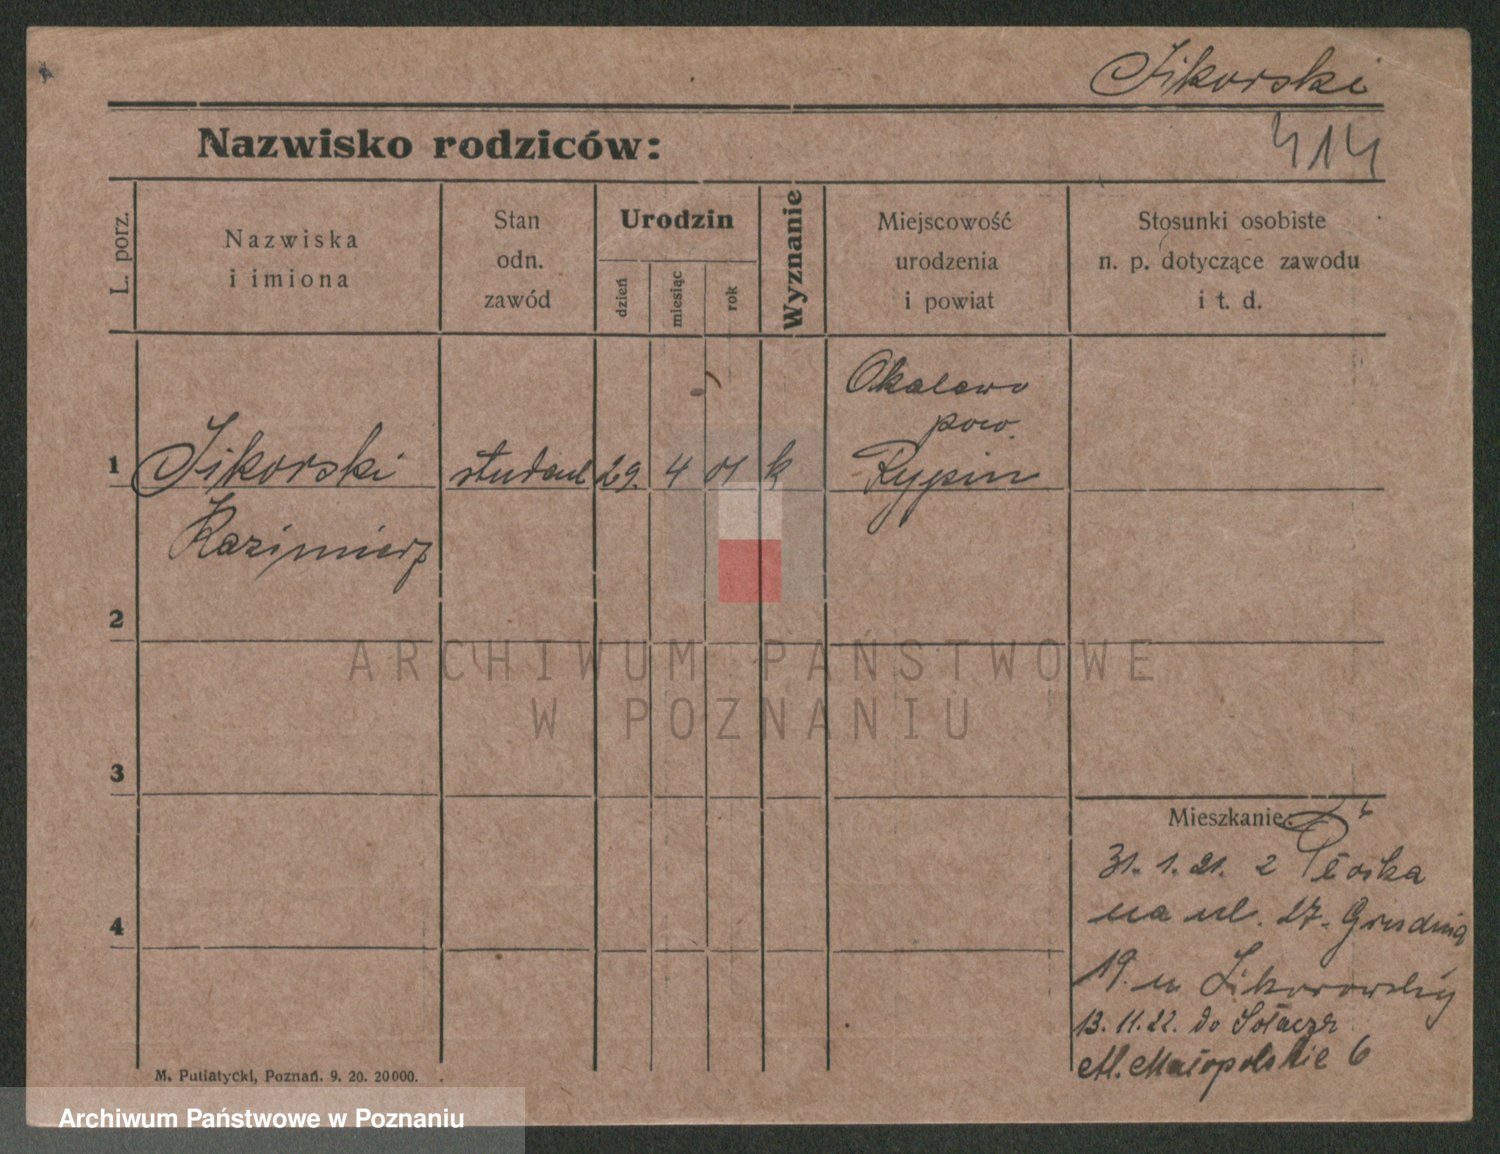 Sikorski
Nazwisko rodziców:
414
L. porz.
Nazwiska
i imiona
Stan
odn.
zawód
Urodzin
dzień
miesiąc
rok
Wyznanie
Miejscowość
urodzenia
i powiat
Stosunki osobiste
n. p. dotyczące zawodu
i t. d.
1
Sikorski
Kazimierz
student
29.
4
01
k
Okalewo
pow.
Rypin
2
3
4
Mieszkanie:
31. 1. 21. z Płocka
na ul. 27. Grudnia
19. u Sikorowskiej
13. 11. 22. do Sołacza
Al. Małopolskie 6
M. Putiatycki, Poznań. 9. 20. 20000.
ARCHIWUM PAŃSTWOWE
W POZNANIU
Archiwum Państwowe w Poznaniu